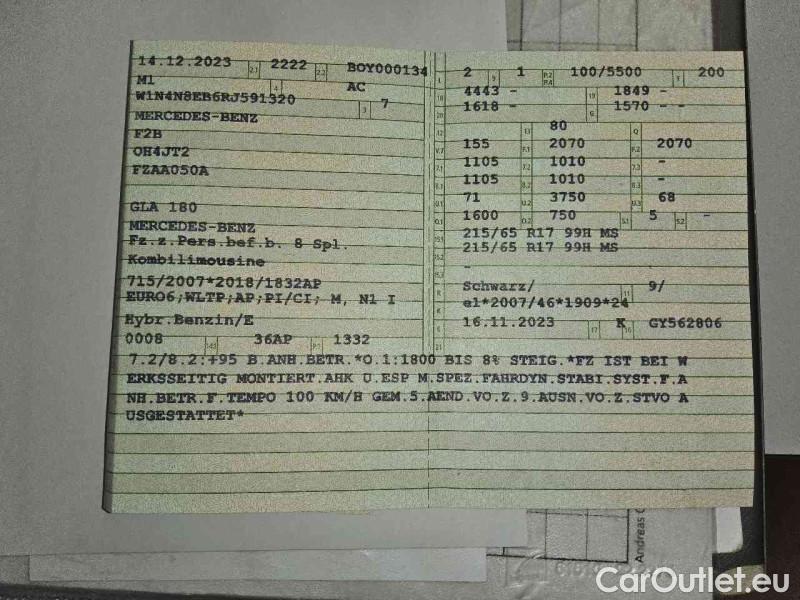 14.12.2023 2.1 2222 2.2 BOY000134
M1 4 AC
W1N4N8EB6RJ591320 3 7
MERCEDES-BENZ
F2B
OH4JT2
FZAA050A
GLA 180
MERCEDES-BENZ
Fz.z.Pers.bef.b. 8 Spl.
Kombilimousine
715/2007*2018/1832AP
EURO6;WLTP;AP;PI/CI; M, N1 I
Hybr.Benzin/E
0008 14.1 36AP P.1 1332
L 2 9 1 P.2 P.4 100/5500 T 200
18 4443 - 19 1849 -
20 1618 - G 1570 - -
12 13 80 Q
V.7 155 F.1 2070 F.2 2070
7.1 1105 7.2 1010 7.3 -
8.1 1105 8.2 1010 8.3 -
U.1 71 U.2 3750 U.3 68
O.1 1600 O.2 750 S.1 5 S.2 -
15.1 215/65 R17 99H MS
15.2 215/65 R17 99H MS
15.3 -
R Schwarz/ 11 9/
K e1*2007/46*1909*24
6 16.11.2023 17 K 16 GY562806
21
7.2/8.2:+95 B.ANH.BETR.*O.1:1800 BIS 8% STEIG.*FZ IST BEI W
ERKSSEITIG MONTIERT.AHK U.ESP M.SPEZ.FAHRDYN.STABI.SYST.F.A
NH.BETR.F.TEMPO 100 KM/H GEM.5.AEND.VO.Z.9.AUSN.VO.Z.STVO A
USGESTATTET*
Andreas
CarOutlet.eu